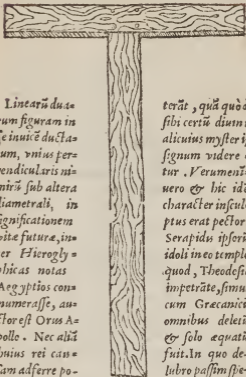 Linearũ dua=
rum figuram in
se inuicẽ ducta-
rum, vnius per-
vendicularis ni-
mirũ sub altera
diametrali, in
significationem
vitæ futuræ, in=
ter Hierogly-
phicas notas
Aegyptios con-
numerasse, au-
ctor est Orus A-
pollo. Nec aliã
huius rei can=
sam adferre po-
terãt, quã quòd
sibi certũ diuini
alicuius mysterij
signum videre
tur. Verumenim
uero & hic ida
character insculp
ptus erat pectori
Serapidu ipsoru
idoli in eo templo
quod, Theodosio
imperãte, simul
cum Græcanicis
omnibus deleti
& solo æquati
fuit. In quo de
lubro passim spe-